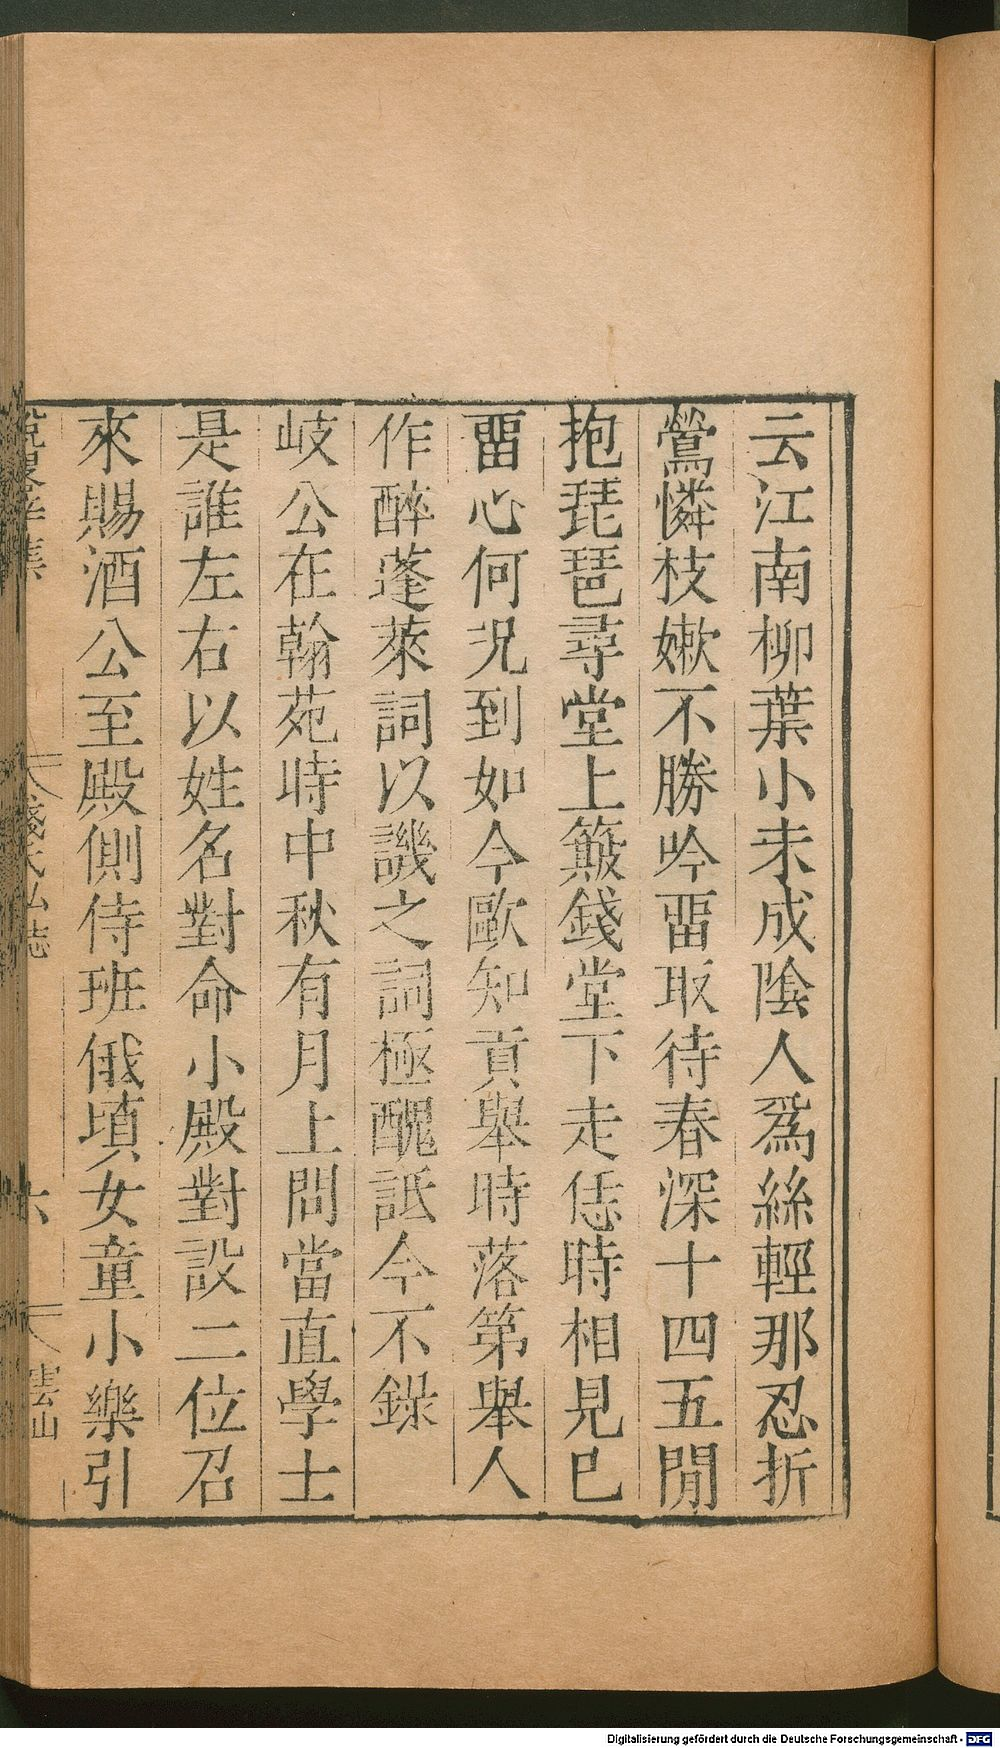 云江南柳葉小未成陰人爲絲輕那忍折
鶯憐枝嫰不勝吟畱取待春深十四五閒
抱琵琶尋堂上簸錢堂下走恁時相見巳
畱心何況到如今歐知貢舉時落第舉人
作醉蓬萊詞以譏之詞極醜詆今不錄
岐公在翰苑時中秋有月上問當直學士
是誰左右以姓名對命小殿對設二位召
來賜酒公至殿側侍班俄頃女童小樂引
錢氏私誌
六
雲山
Digitalisierung gefördert durch die Deutsche Forschungsgemeinschaft - DFG